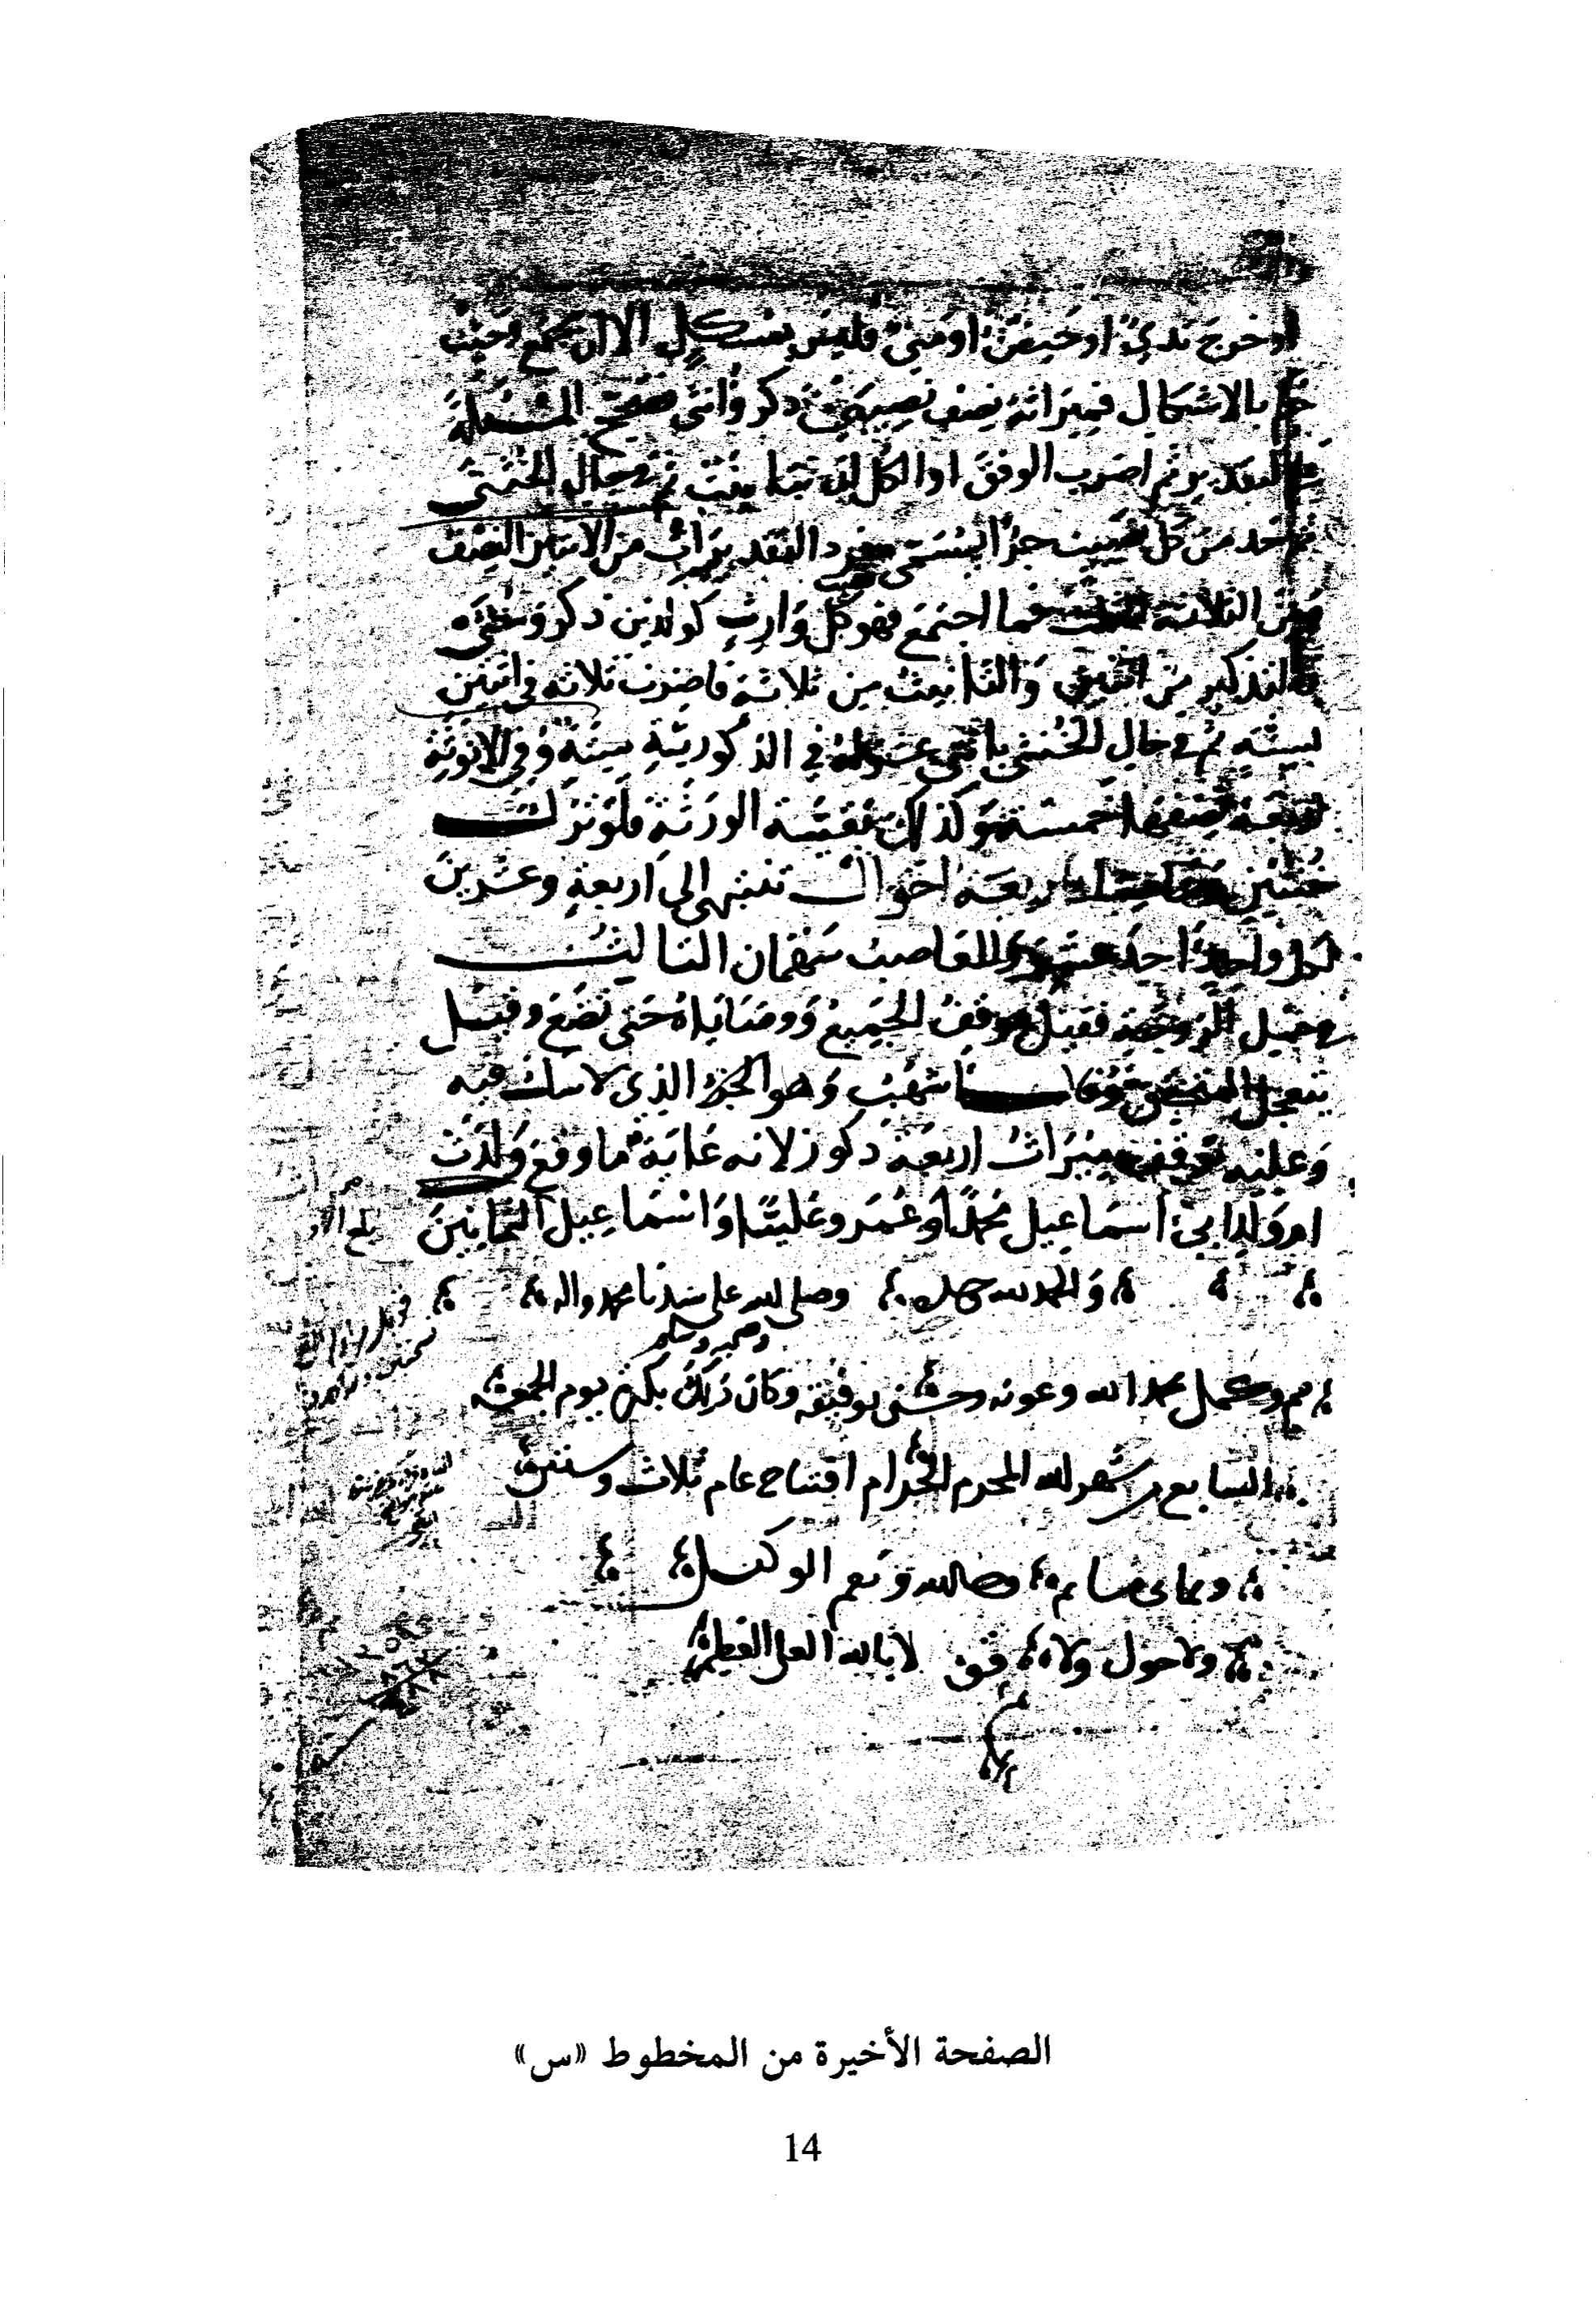 او خرج ثدي او حيض او مني فليس بمشكل الا ان يجتمع وحيث
حكم بالاشكال فميراثه نصف نصيبي ذكر وأنثى فصحح المسئلة
بالتقديرين ثم اضرب الوفق او الكل ان تباينت ثم في حال الخنثى
ثم خذ من كل نصيب جزا يسمى مفرد التقديرات من الاثنين النصف
ومن الثلاثة الثلث فما اجتمع فهو كل وارث كولدين ذكر وخنثى
فالتذكير من اثنين والتأنيث من ثلاثة فاضرب ثلاثه في اثنين
بسته ثم في حال الخنثى باثني عشر له في الذكورية ستة وفي الانوثة
اربعة نصفها خمسة وكذلك بقية الورثة فلو ترك
خنثيين وعاصبا باربعة احوال تنتهي الى اربعة وعشرين
لكل واحد احد عشر وللعاصب سهمان الثالث
في حمل الزوجة فقيل يوقف الجميع ووصاياه حتى تضع وقيل
يتعجل المتحقق وقال أشهب وهو الجزء الذي لا شك فيه
وعليه توقف ميراث اربعة ذكور لانه غاية ما وقع ولدت
ام ولد ابي اسماعيل محمدا وعمر وعليا واسماعيل الثمانين
والحمد لله وصلى الله على سيدنا محمد واله
وصحبه وسلم
تم وكمل بحمد الله وعونه وحسن توفيقه وكان ذلك بكرة يوم الجمعة
السابع من شهر الله المحرم الحرام افتتاح عام ثلاث وستين
وثماني مايه وحسبنا الله ونعم الوكيل
ولا حول ولا قوة الا بالله العلي العظيم
الصفحة الأخيرة من المخطوط «س»
14